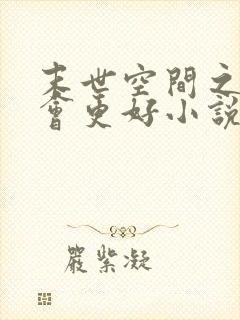 末世空間之
會更好小說
嚴紫凝